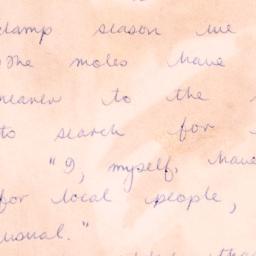 damp season we
The moles have
nearer to the
to search for
"I, myself, have
for local people,
usual."